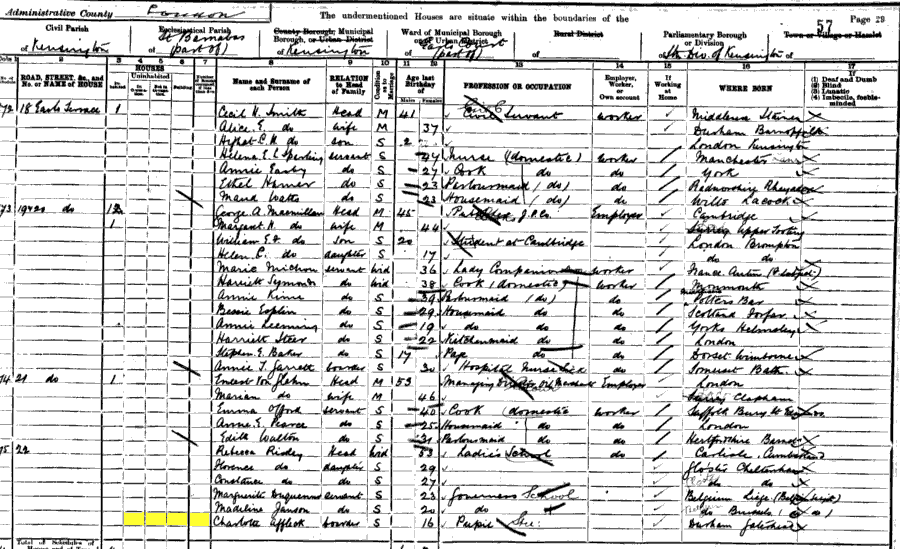 Administrative County London
The undermentioned Houses are situate within the boundaries of the
57
Page 29
Civil Parish
of Kensington
Ecclesiastical Parish
of St Barnabas (part of)
County Borough, Municipal Borough, or Urban District
of Kensington
Ward of Municipal Borough or Urban District
of Earls Court (part of)
Rural District
of
Parliamentary Borough or Division
of Sth Div. of Kensington
Town or Village or Hamlet
of
1 2 3 4 5 6 7 8 9 10 11 12 13 14 15 16 17
ROAD, STREET, &c., and No. or NAME of HOUSE
HOUSES
Uninhabited
Building
Name and Surname of each Person
RELATION to Head of Family
Condition as to Marriage
Age last Birthday of
Males Females
PROFESSION OR OCCUPATION
Employer, Worker, or Own account
If Working at Home
WHERE BORN
(1) Deaf and Dumb
(2) Blind
(3) Lunatic
(4) Imbecile, feeble-minded
72 18 Earls Terrace 1 Cecil H. Smith Head M 41 Civil Servant worker Middlesex Staines
Alice E. do wife M 37 Durham
do son S 2 London Kensington
Helena E. L Sperling servant S 44 Nurse (domestic) Worker Manchester
Annie Easby do S 27 Cook do do York
Ethel Hamer do S 23 Parlourmaid (do) do Radnorshire Rhayader
Maud Watts do S 23 Housemaid (do) do Wilts Lacock
73 19&20 do George A Macmillan Head M 45 J.P. Employer Cambridge
1 Margaret H. do wife M 44 Surrey Upper Tooting
William E. F. do Son S 20 Student at Cambridge London Brompton
Helen C. do daughter S 17 do do
Marie Michon servant Wid 36 Lady Companion worker France
Harriett Symonds do Wid 38 Cook (domestic) Worker Monmouth
Annie Kime do S 39 Parlourmaid (do) do Potters Bar
Bessie Esplin do S 29 Housemaid do do Scotland Forfar
Annie Leeming do S 19 do do do Yorks Helmsley
Harriett Steer do S 22 Kitchenmaid do do London
Stephen E. Baker do S 17 Page do do Dorset Wimborne
Annie T. Jarrett boarder S 30 Hospital Nurse Somerset Bath
74 21 do 1 Ernest Von Glehn Head M 53 Managing Director Oil Merchant Employer London
Marian do wife M 46 Surrey Clapham
Emma Offord servant S 40 Cook (domestic) worker Suffolk Bury St
Anne E. Pearce do S 25 Housemaid do do London
Edith Walton do S 31 Parlourmaid do do Hertfordshire Barnet
75 22 Rebecca Ridley Head Wid 53 Ladies School do Carlisle, Cumberland
Florence do daughter S 29 Glos Cheltenham
Constance do do S 27 do do
Marguerite Duquenne Servant S 23 Governess School Belgium Liege
Madeline Janson do S 20 do do Brussels
Charlotte Affleck boarder S 16 Pupil Durham Gateshead
Total of Schedules of